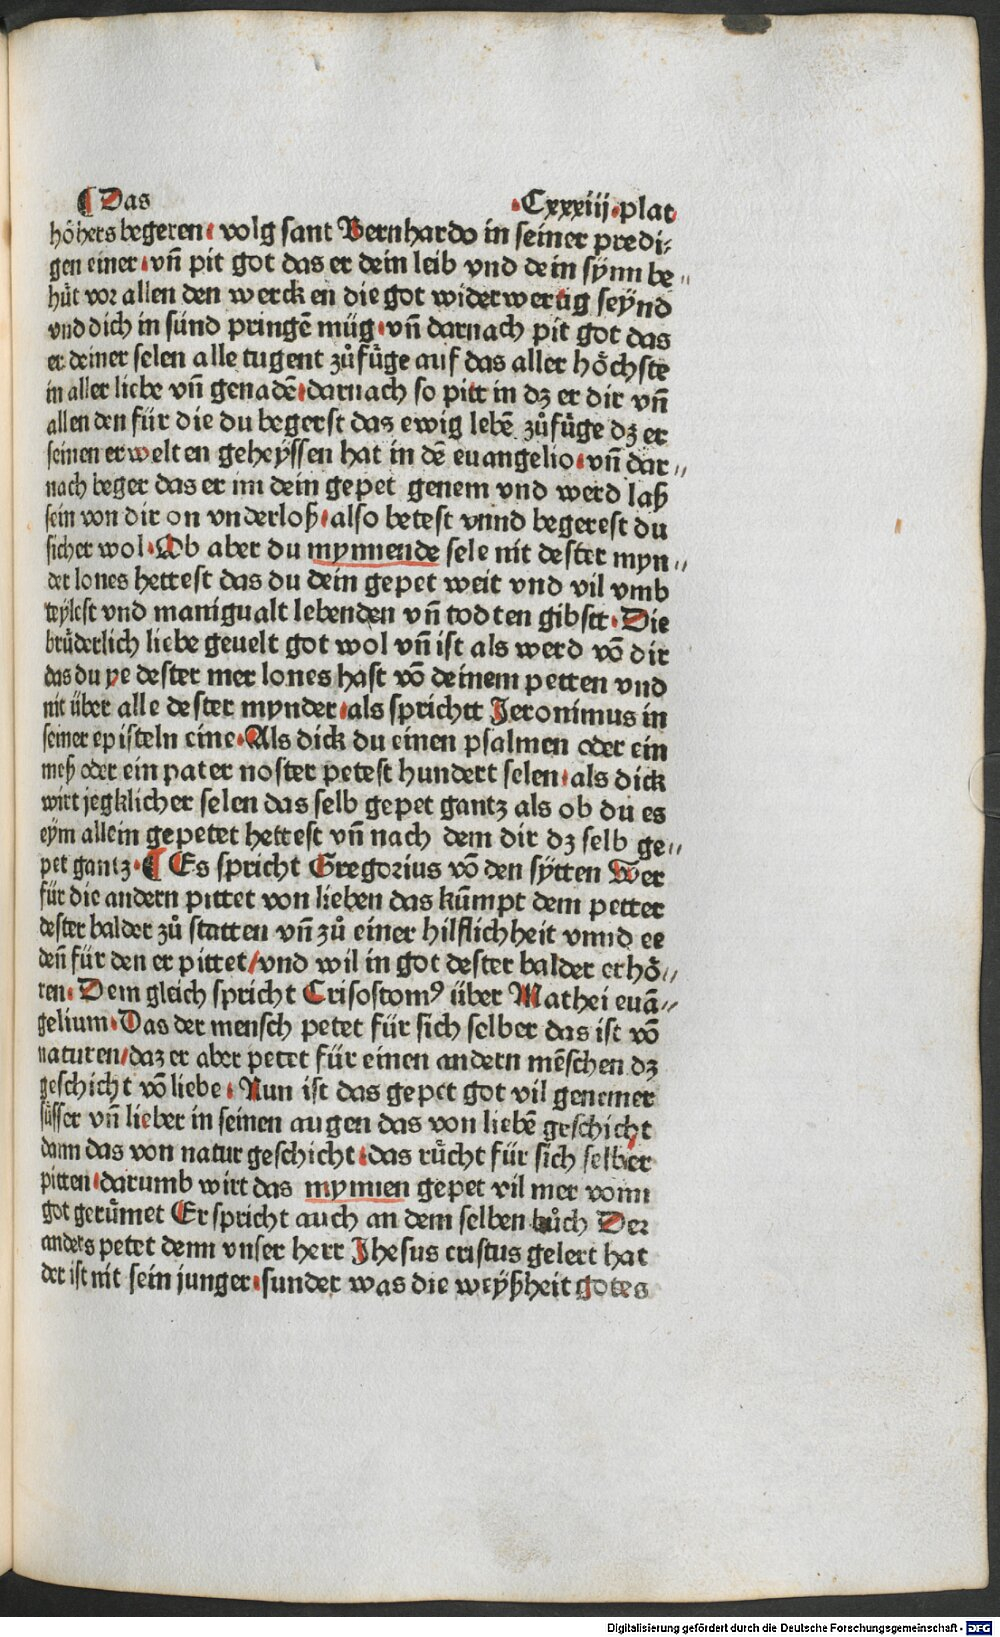 ¶ Das .Cxxxiij.plat
höhers begeren. volg sant Bernhardo in seiner predi-
gen einer. vñ pit got das er dein leib vnd dein sÿnn be-
hüt vor allen den wercken die got widerwertig seÿnd
vnd dich in sünd pringẽ müg. vñ darnach pit got das
er deiner selen alle tugent zůfüge auf das aller höchste
in aller liebe vñ genadẽ. darnach so pitt in dz er dir vñ
allen den für die du begerst das ewig lebẽ zůfüge dz er
seinen erwelten geheÿssen hat in dẽ euangelio. vñ dar-
nach beger das er im dein gepet genem vnd werd laß
sein von dir on vnderloß. also betest vnnd begerest du
sicher wol. Ob aber du mynnende sele nit dester myn-
der lones hettest das du dein gepet weit vnd vil vmb
teÿlest vnd manigualt lebenden vñ todten gibstt. Die
brüderlich liebe geuelt got wol vñ ist als werd võ dir
das du ye dester mer lones hast võ deinem petten vnd
nit über alle dester mynder. als sprichtt Jeronimus in
seiner episteln eine. Als dick du einen psalmen oder ein
meß oder ein pater noster petest hundert selen. als dick
wirt jegklicher selen das selb gepet gantz als ob du es
eÿm allein gepetet hettest vñ nach dem dir dz selb ge-
pet gantz. ¶ Es spricht Gregorius võ den sÿtten Wer
für die andern pittet von lieben das kũmpt dem petter
dester balder zů statten vñ zů einer hilflichheit vnnd ee
deñ für den er pittet/vnd wil in got dester balder erhö-
ren. Dem gleich spricht Crisostomꝰ über Mathei euã-
gelium. Das der mensch petet für sich selber das ist võ
naturen/daz er aber petet für einen andern mẽschen dz
geschicht võ liebe. Nun ist das gepet got vil genemer
süsser vñ lieber in seinen augen das von liebẽ geschicht
dann das von natur geschicht. das rücht für sich selber
pitten. darumb wirt das mynnen gepet vil mer vonn
got gerümet Er spricht auch an dem selben bůch Der
anders petet denn vnser herr Jhesus cristus gelert hat
der ist nit sein junger. sunder was die weÿßheit gotes
Digitalisierung gefördert durch die Deutsche Forschungsgemeinschaft - DFG